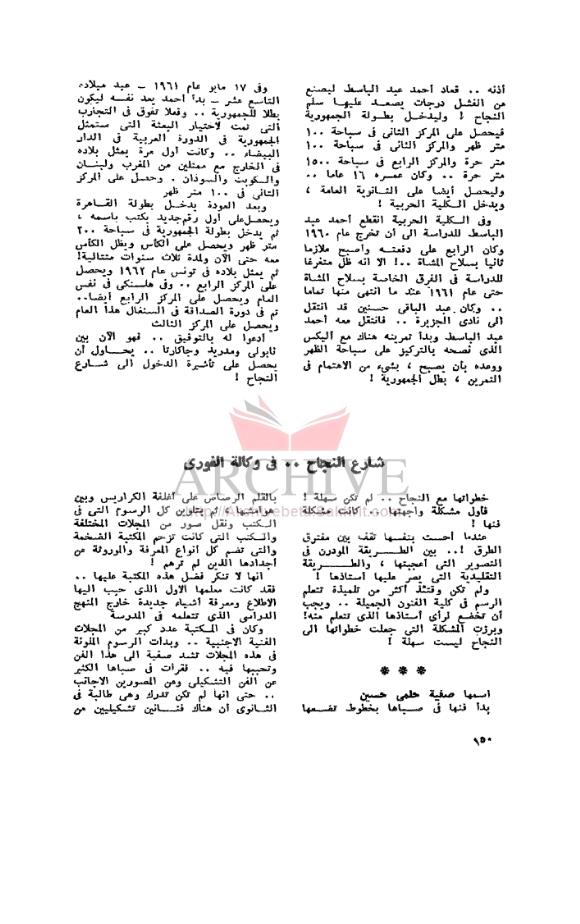 أذنه .. فعاد أحمد عبد الباسط ليصنع
من الفشل درجات يصعد عليها سلم
النجاح ! وليدخل بطولة الجمهورية
فيحصل على المركز الثانى فى سباحة ١٠٠
متر ظهر والمركز الثانى فى سباحة ١٠٠
متر حرة والمركز الرابع فى سباحة ١٥٠٠
متر حرة .. وكان عمره ١٦ عاما ..
وليحصل أيضا على الثانوية العامة ،
ويدخل الكلية الحربية !
وفى الكلية الحربية انقطع أحمد عبد
الباسط للدراسة الى أن تخرج عام ١٩٦٠
وكان الرابع على دفعته وأصبح ملازما
ثانيا بسلاح المشاة ..! الا انه ظل متفرغا
للدراسة فى الفرق الخاصة بسلاح المشاة
حتى عام ١٩٦١ عند ما انتهى منها تماما
.. وكان عبد الباقى حسنين قد انتقل
الى نادى الجزيرة .. فانتقل معه أحمد
عبد الباسط وبدأ تمرينه هناك مع أليكس
الذى نصحه بالتركيز على سباحة الظهر
ووعده بأن يصبح ، بشىء من الاهتمام فى
التمرين ، بطل الجمهورية !
وفى ١٧ مايو عام ١٩٦١ - عيد ميلاده
التاسع عشر - بدأ أحمد يعد نفسه ليكون
بطلا للجمهورية .. وفعلا تفوق فى التجارب
التى تمت لاختيار البعثة التى ستمثل
الجمهورية فى الدورة العربية فى الدار
البيضاء .. وكانت أول مرة يمثل بلاده
فى الخارج مع ممثلين من المغرب ولبنان
والكويت والسودان . وحصل على المركز
الثانى فى ١٠٠ متر ظهر
وبعد العودة يدخل بطولة القاهرة
ويحصل على أول رقم جديد يكتب باسمه ،
ثم يدخل بطولة الجمهورية فى سباحة ٢٠٠
متر ظهر ويحصل على الكأس ويظل الكأس
معه حتى الآن ولمدة ثلاث سنوات متتالية!
ثم يمثل بلاده فى تونس عام ١٩٦٢ ويحصل
على المركز الرابع .. وفى هلسنكى فى نفس
العام ويحصل على المركز الرابع أيضا..
ثم فى دورة الصداقة فى السنغال هذا العام
ويحصل على المركز الثالث
ادعوا له بالتوفيق .. فهو الآن بين
نابولى ومدريد وجاكارتا .. يحاول أن
يحصل على تأشيرة الدخول الى شارع
النجاح !
شارع النجاح .. فى وكالة الغورى
ARCHIVE
خطواتها مع النجاح .. لم تكن سهلة !
فأول مشكلة واجهتها .. كانت مشكلة
فنها !
عندما أحست بنفسها تقف بين مفترق
الطرق !.. بين الطريقة المودرن فى
التصوير التى أعجبتها ، والطريقة
التقليدية التى يصر عليها أستاذها !
ولم تكن وقتئذ أكثر من تلميذة تتعلم
الرسم فى كلية الفنون الجميلة .. ويجب
أن تخضع لرأى أستاذها الذى تتعلم منه!
وبرزت المشكلة التى جعلت خطواتها الى
النجاح ليست سهلة !
* * *
اسمها صفية حلمى حسين
بدأ فنها فى صباها بخطوط تضعها
بالقلم الرصاص على أغلفة الكراريس وبين
هوامشها ، ثم بتلوين كل الرسوم التى فى
الكتب ونقل صور من المجلات المختلفة
والكتب التى كانت تزحم المكتبة الضخمة
والتى تضم كل أنواع المعرفة والموروثة عن
أجدادها الذين لم ترهم !
انها لا تنكر فضل هذه المكتبة عليها ..
فقد كانت معلمها الاول الذى حبب اليها
الاطلاع ومعرفة أشياء جديدة خارج المنهج
الدراسى الذى تتعلمه فى المدرسة
وكان فى المكتبة عدد كبير من المجلات
الفنية الاجنبية .. وبدأت الرسوم الملونة
فى هذه المجلات تشد صفية الى هذا الفن
وتحببها فيه .. فقرأت فى صباها الكثير
عن الفن التشكيلى وعن المصورين الاجانب
.. حتى انها لم تكن تدرك وهى طالبة فى
الثانوى أن هناك فنانين تشكيليين من
١٥٠